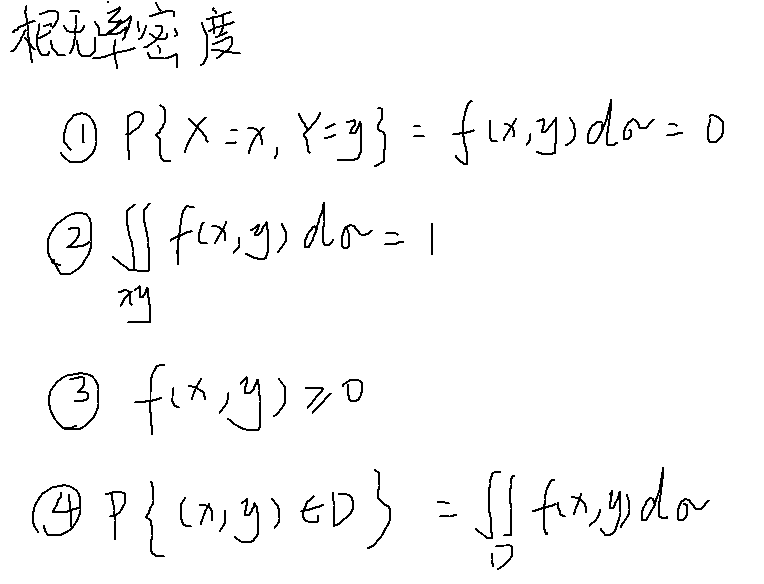 根无率密度
① P{X=x, Y=y} = f(x,y)dσ = 0
② ∬ f(x,y)dσ = 1
xy
③ f(x,y) ≥ 0
④ P{(x,y)∈D} = ∬ f(x,y)dσ
D